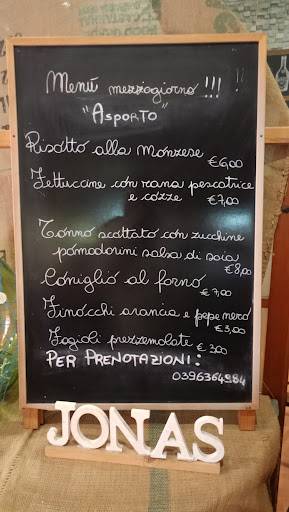 Menú mezzogiorno !!! !!
"Asporto"
Risotto alla Monzese
€6,00
Fettuccine con rana pescatrice
e cozze €7,00
Tonno scottato con zucchine
pomodorini salsa di soia
€8,00
Coniglio al forno
€7,00
Finocchi arancia e pepe nero
€3,00
Fagioli prezzemolate €3,00
PER PRENOTAZIONI:
0396364984
JONAS